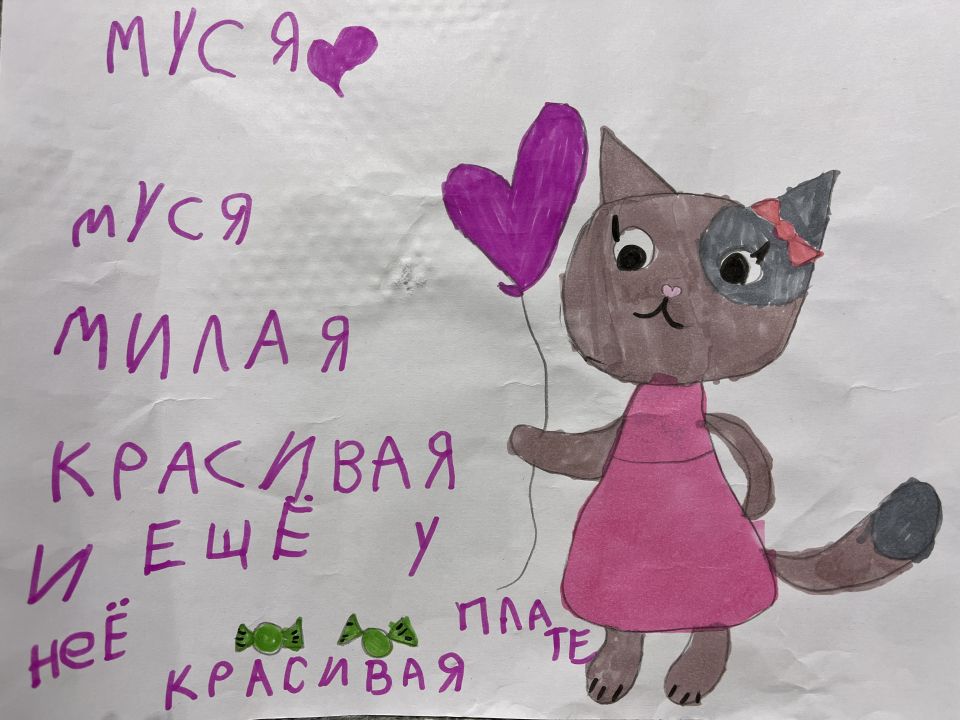 МУСЯ
МУСЯ
МИЛАЯ
КРАСИВАЯ
И ЕЩЁ У
НЕЁ
КРАСИВАЯ
ПЛА
ТЕ